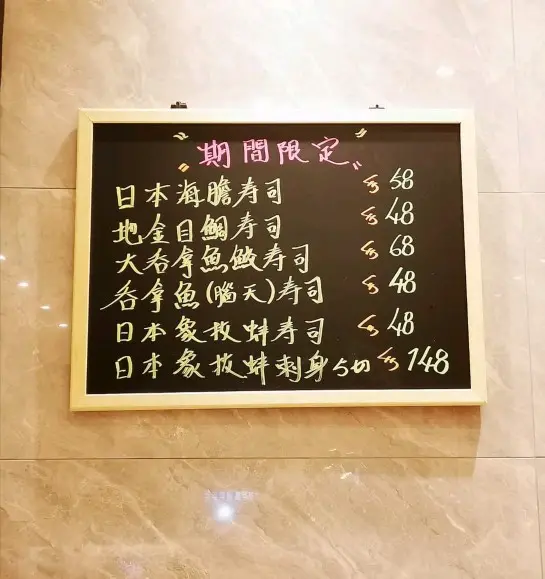 "期間限定"
日本海膽寿司 $58
地金目鯛寿司 $48
大吞拿魚鮫寿司 $68
吞拿魚(腦天)寿司 $48
日本象拔蚌寿司 $48
日本象拔蚌刺身5切 $148